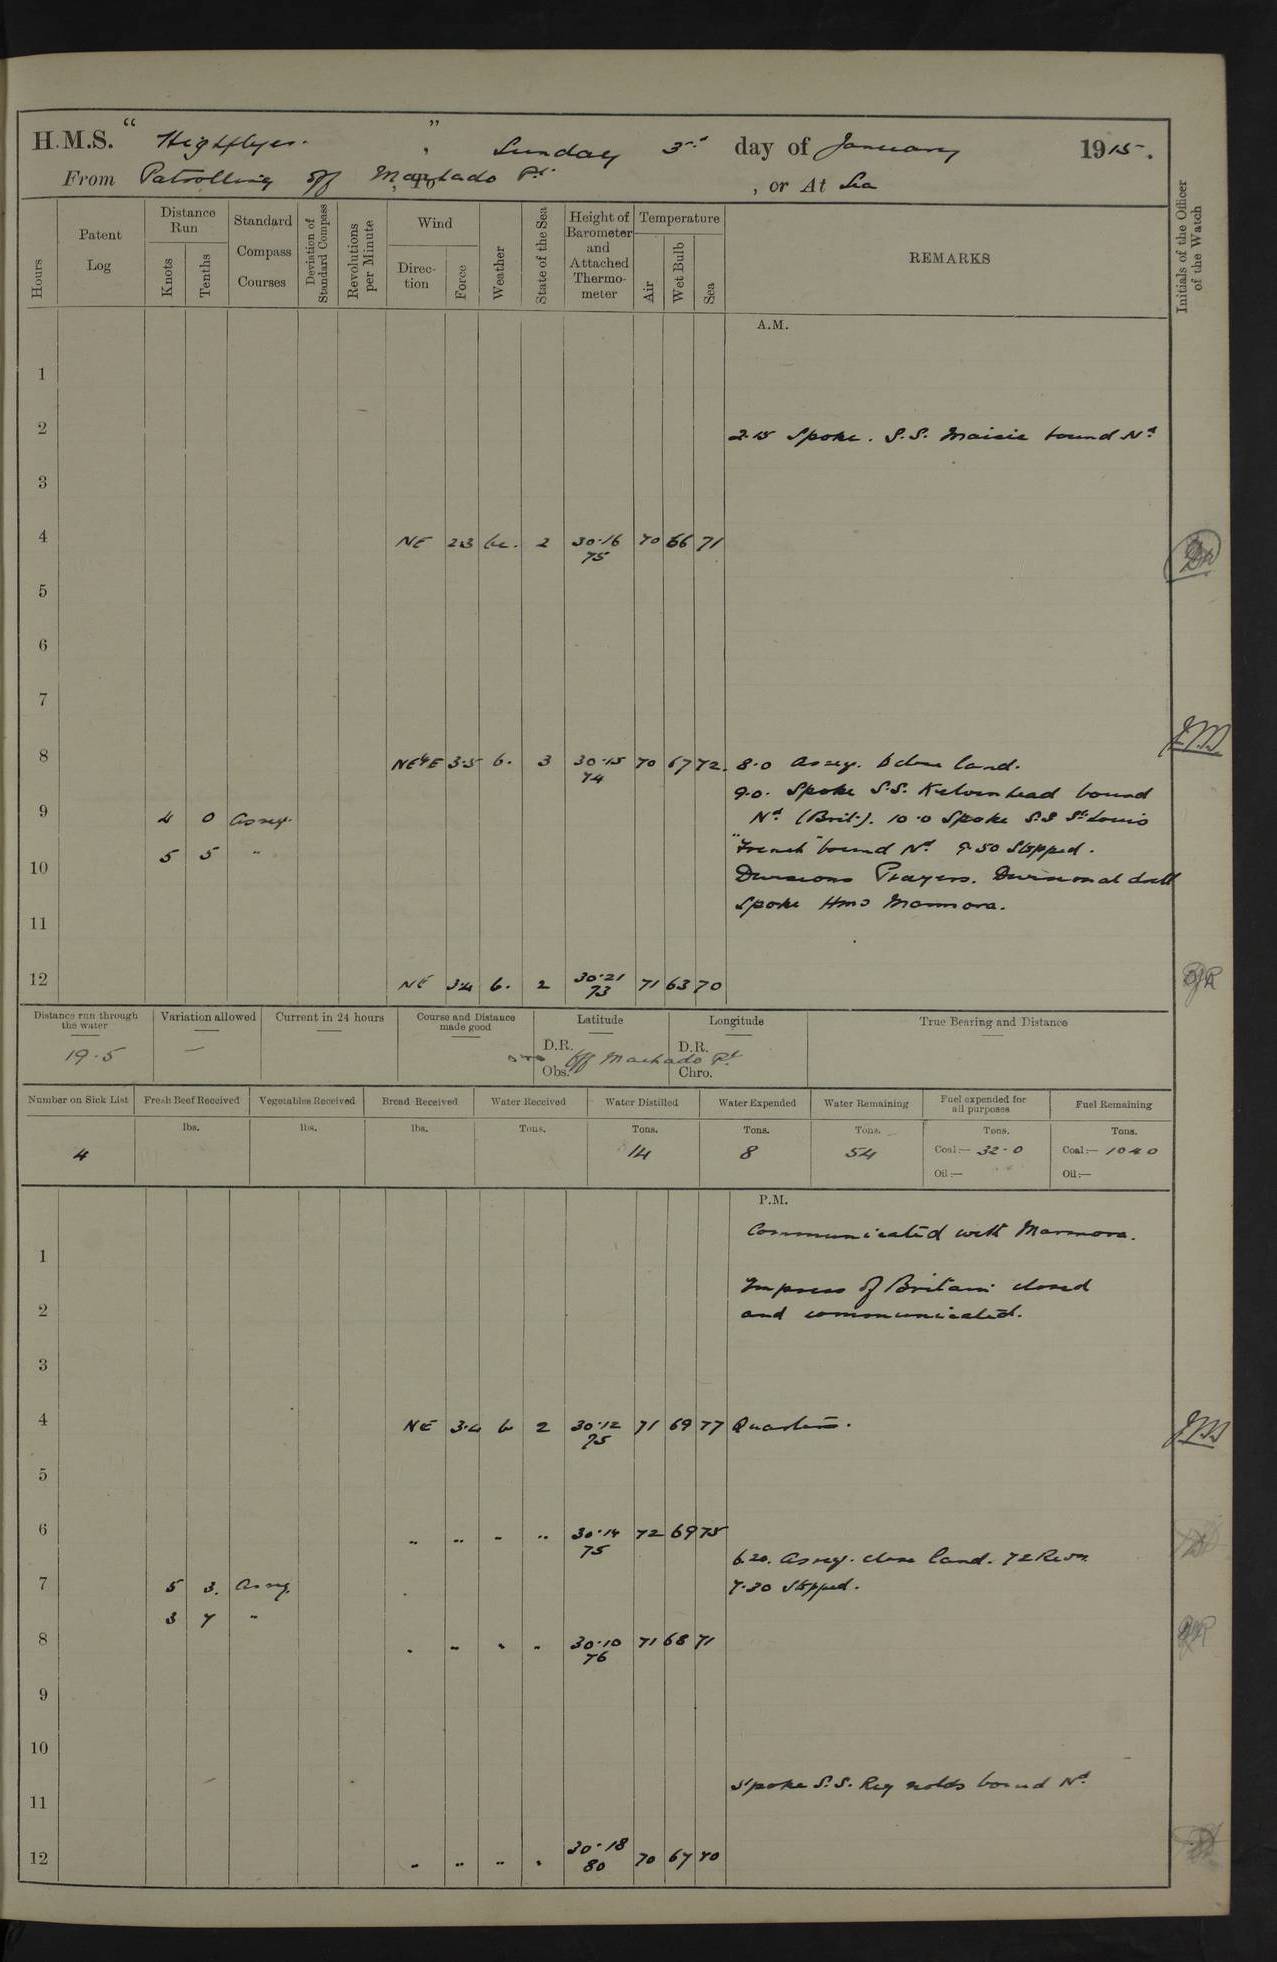 H.M.S. " Highflyer. " , Sunday 3rd day of January 1915.
From Patrolling off Machado Pt. , or At Sea
Hours
Patent Log
Distance Run
Knots
Tenths
Standard Compass Courses
Deviation of Standard Compass
Revolutions per Minute
Wind
Direction
Force
Weather
State of the Sea
Height of Barometer and Attached Thermometer
Temperature
Air
Wet Bulb
Sea
REMARKS
Initials of the Officer of the Watch
A.M.
1
2 2.15 Spoke. S.S. Maisie bound Nd
3
4 NE 2.3 bc. 2 30.16 75 70 66 71
5
6
7
8 NEbyE 3.5 b. 3 30.15 74 70 67 72. 8.0 As req. to close land.
9.0. Spoke S.S. Kelvinhead bound
9 4 0 As req. Nd. (Brit.). 10.0 Spoke S.S St Louis
5 5 " "French" bound Nd 9.50 Stopped.
10 Divisions Prayers. Divisional drill
Spoke HMS Marmora.
11
12 NE 3.4 b. 2 30.21 73 71 63 70
Distance run through the water
19.5
Variation allowed
—
Current in 24 hours
Course and Distance made good
Latitude
D.R.
Obs.
Longitude
D.R.
Chro.
off Machado Pt
True Bearing and Distance
Number on Sick List
4
Fresh Beef Received
lbs.
Vegetables Received
lbs.
Bread Received
lbs.
Water Received
Tons.
Water Distilled
Tons.
14
Water Expended
Tons.
8
Water Remaining
Tons.
54
Fuel expended for all purposes
Tons.
Coal:— 32.0
Oil:—
Fuel Remaining
Tons.
Coal:— 1040
Oil:—
P.M.
Communicated with Marmora.
1
Impress of Britain closed
2 and communicated.
3
4 NE 3.4 b 2 30.12 75 71 69 77 Quarters.
5
6 " " " " 30.14 75 72 69 75
6.20. As req. close land. 72 Revs.
7 5 3. As req. 7.30 Stopped.
3 7 "
8 " " " " 30.10 76 71 68 71
9
10
Spoke S.S. Reynolds bound Nd
11
12 " " " " 30.18 80 70 67 70